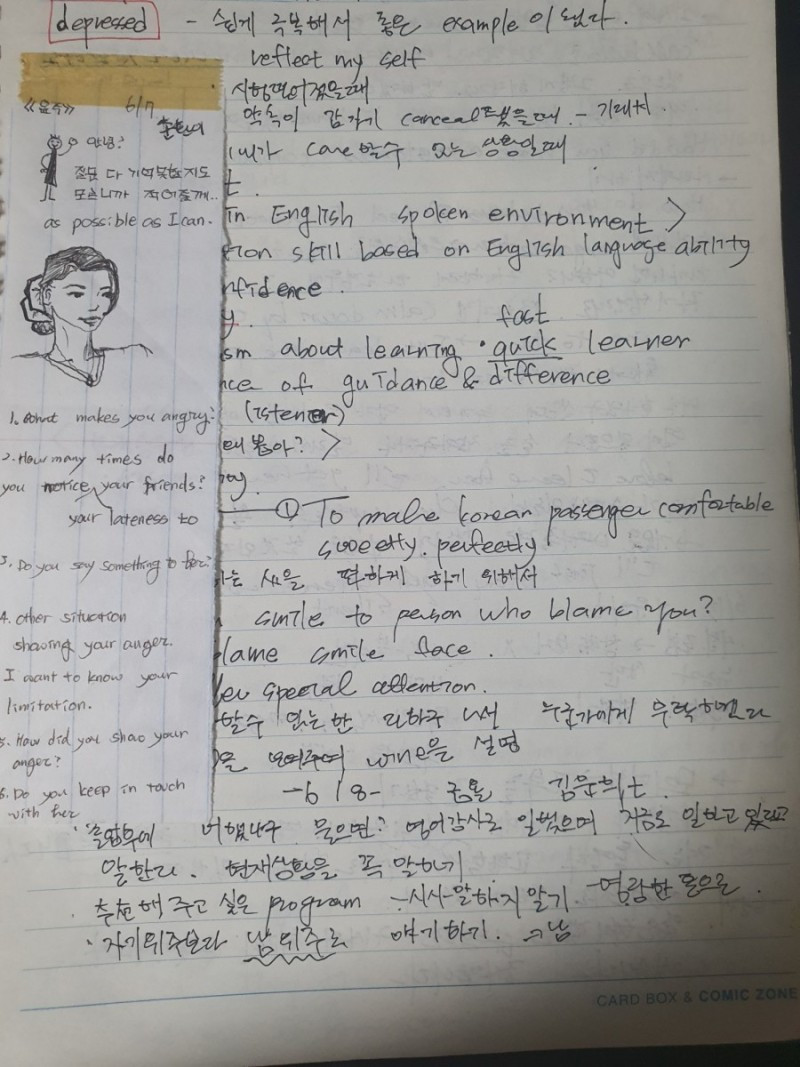 depressed - 쉽게 극복해서 좋은 example 이 된다.
reflect my self
시험떨어졌을때
약속이 갑자기 canceal됐을때. - 기대치.
내가 care할수 없는 상황일때
t.
in English spoken environment >
tion skill based on English language ability
nfidence.
y. fast
sm about learning · quick learner
nce of guidance & difference
(listener)
때 봅아? >
① To make korean passenger comfortable
sweetly. perfectly
하는 것을 편하게 하기 위해서
smile to person who blame you?
lame smile face.
special attention.
할수 있는한
보여주며 when을 설명
-6/8- 금욜
졸업후에 뭐했냐구 물으면? 영어강사로 일했으며 지금도 일하고 있다고
말한다. 현재상황을 꼭 말하기
· 추천해 주고 싶은 program - 시사말하지 말기. - 명랑한 톤으로.
· 자기위주보다 남위주로 얘기하기.
6/7
안녕?
질문 다 기억못할지도
모르니까 적어줄께..
as possible as I can.
1. What makes you angry?
2. How many times do
you notice your friends?
your lateness to
3. Do you say something to her?
4. other situation
showing your anger.
I want to know your
limitation.
5. How did you shao your
anger?
6. Do you keep in touch
with her
CARD BOX & COMIC ZONE